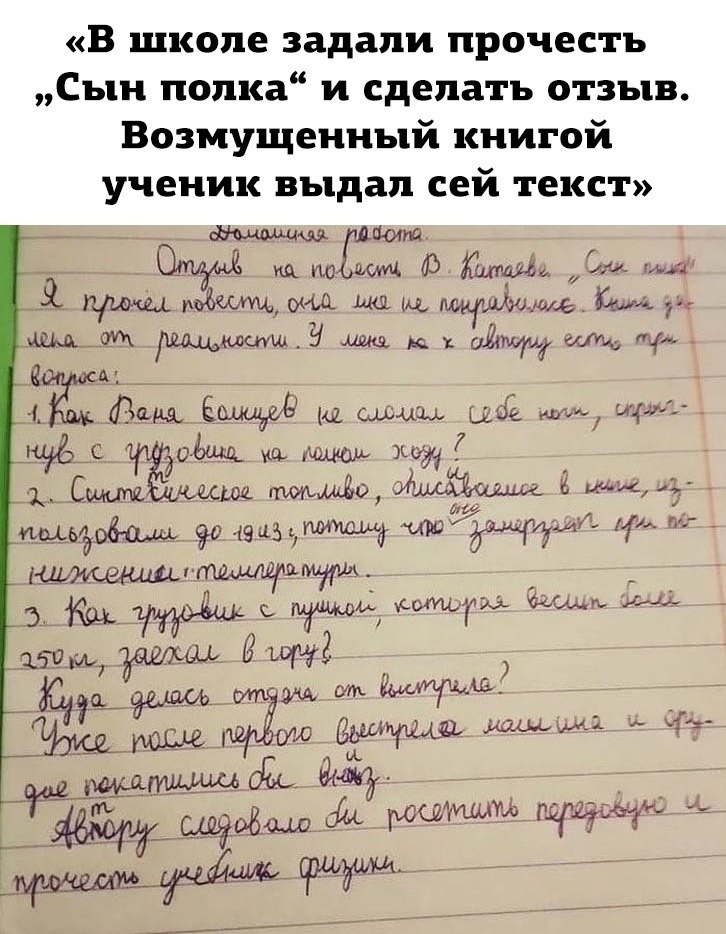 «В школе задали прочесть
„Сын полка“ и сделать отзыв.
Возмущенный книгой
ученик выдал сей текст»
Домашняя работа.
Отзыв на повесть В. Катаева „Сын полка"
Я прочёл повесть, она мне не понравилась. Книга да-
лека от реальности. У меня к автору есть три
вопроса:
1. Как Ваня Солнцев не сломал себе ноги, спрыг-
нув с грузовика на полном ходу?
2. Синтетическое топливо, описываемое в книге, ис-
пользовали до 1943, потому что оно замерзает при по-
нижении температуры.
3. Как грузовик с пушкой, которая весит более
250 кг, заехал в гору?
Куда делась отдача от выстрела?
Уже после первого выстрела машина и ору-
дие покатились бы вниз.
Автору следовало бы посетить передовую и
прочесть учебник физики.